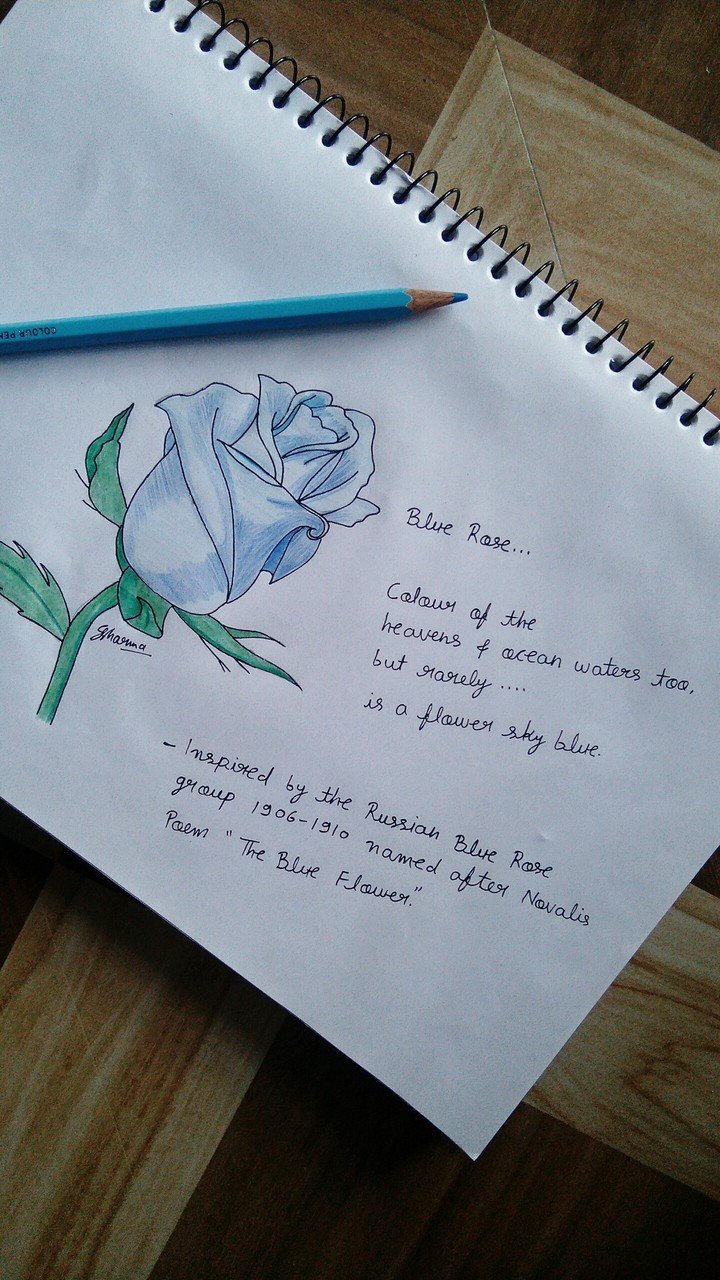 COLOUR PEN
Blue Rose...
Colour of the
heavens & ocean waters too,
but rarely ....
is a flower sky blue.
Sharma
- Inspired by the Russian Blue Rose
group 1906-1910 named after Novalis
Poem "The Blue Flower."